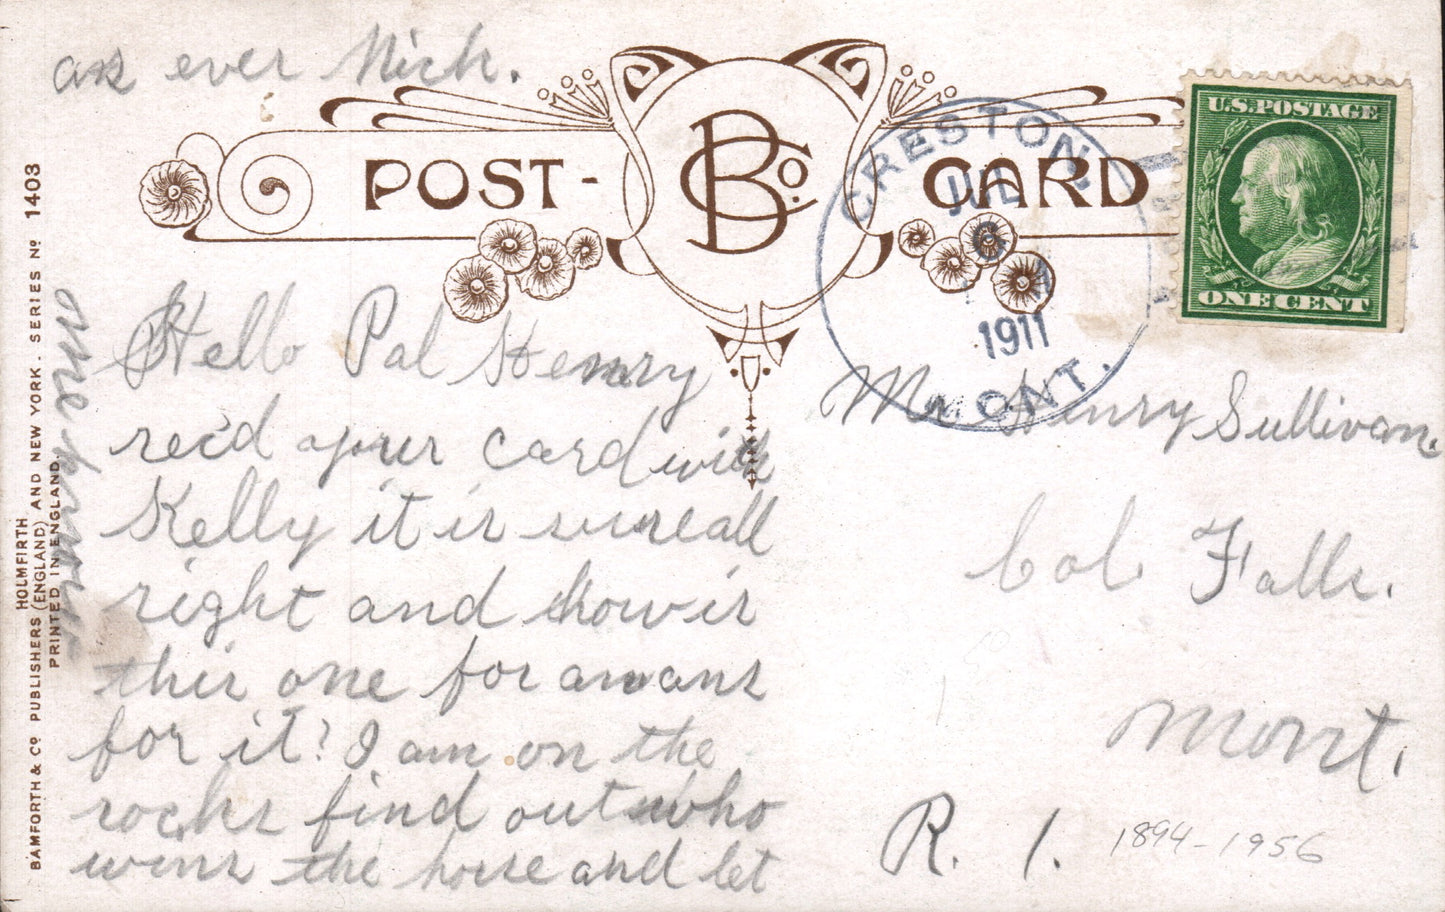 as ever Nick.
POST-CARD
BCo.
CRESTON
JUL
6
A
1911
MONT.
U.S.POSTAGE
ONE CENT
Hello Pal Henry
rec'd your card with
Kelly it is sure all
right and how is
this one for an ans
for it? I am on the
rocks find out who
wins the horse and let
me know
Mr. Henry Sullivan.
Col Falls.
Mont.
R. 1.
1894-1956
BAMFORTH & CO PUBLISHERS (ENGLAND) AND NEW YORK. SERIES No 1403
HOLMFIRTH
PRINTED IN ENGLAND